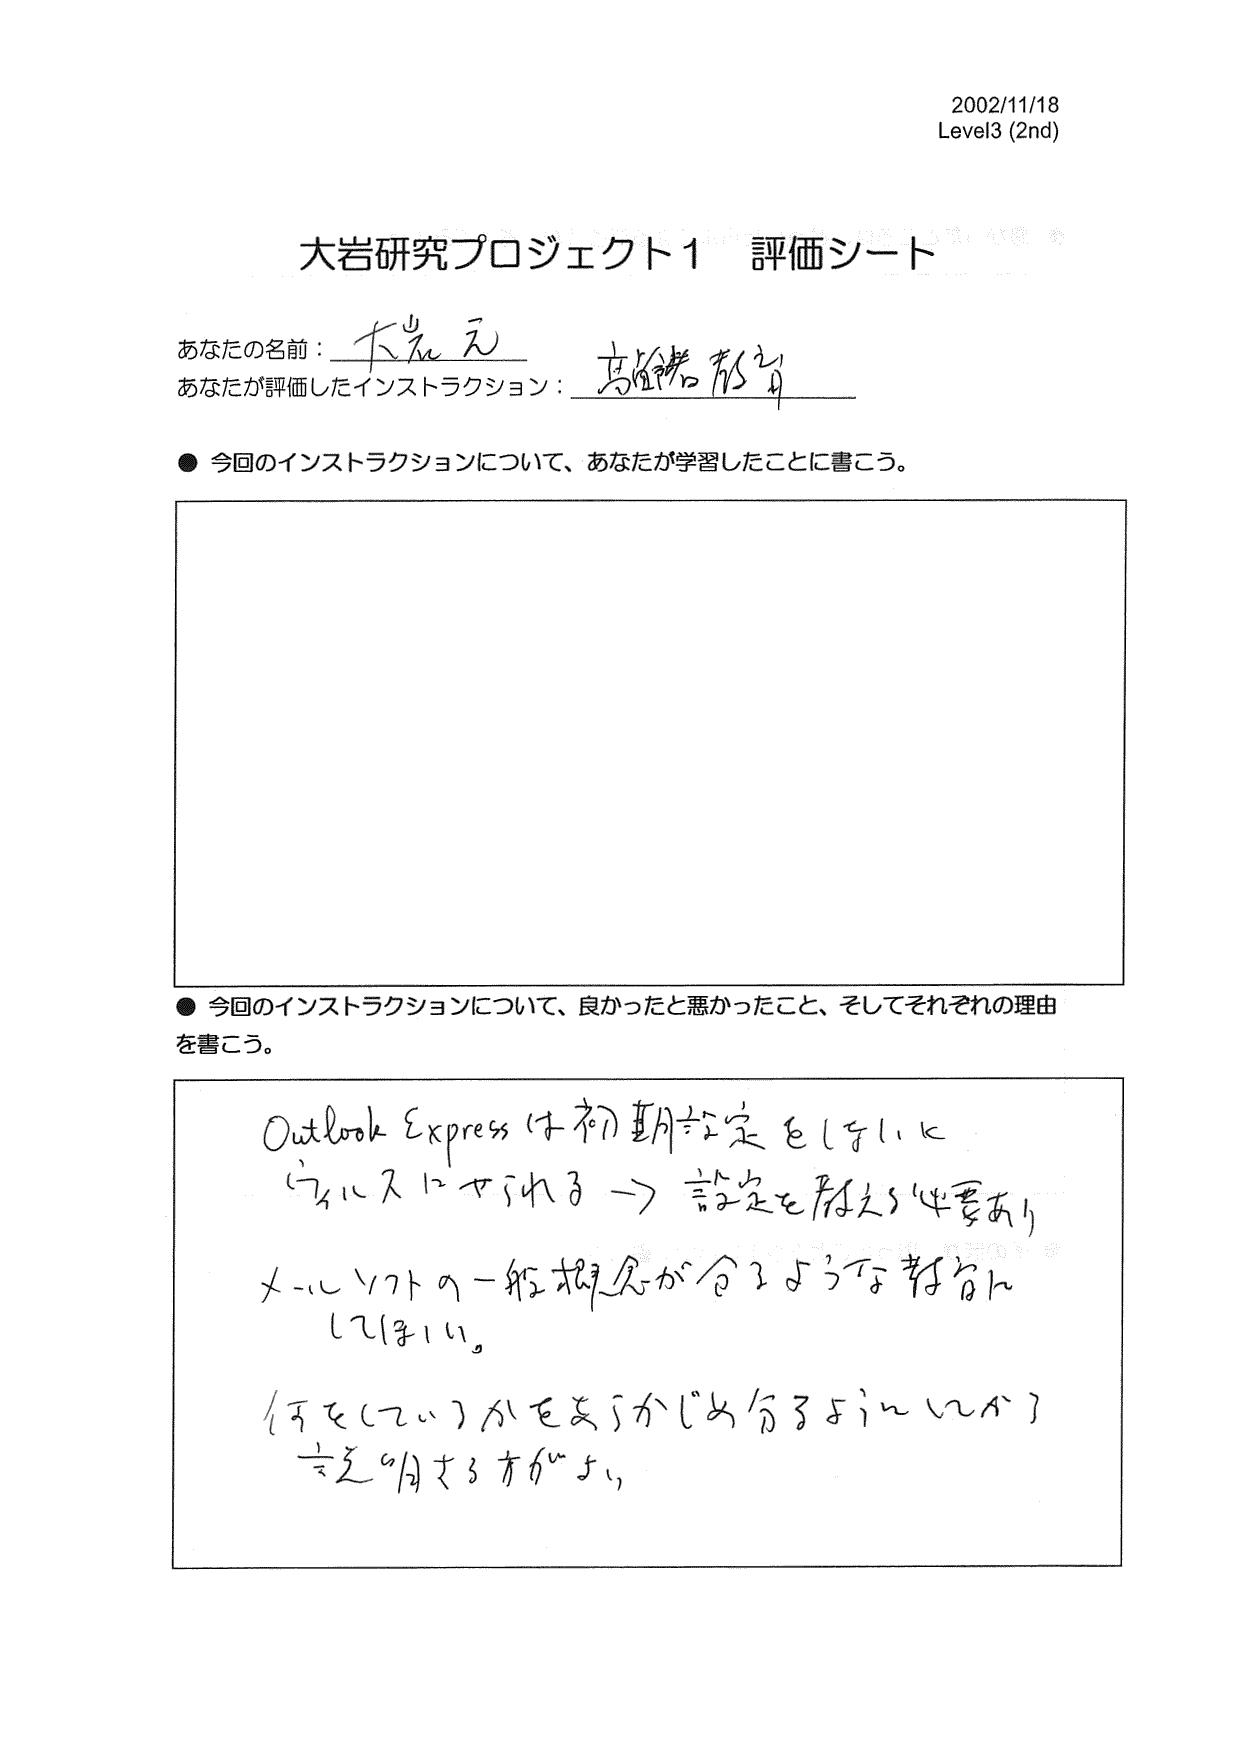 2002/11/18
Level3 (2nd)
大岩研究プロジェクト１　評価シート
あなたの名前：大岩元
あなたが評価したインストラクション：高齢者教育
● 今回のインストラクションについて、あなたが学習したことに書こう。
● 今回のインストラクションについて、良かったと悪かったこと、そしてそれぞれの理由
を書こう。
Outlook Expressは初期設定をしないと
ウィルスにやられる → 設定を教える必要あり
メールソフトの一般概念が分るような教育に
してほしい。
何をしているかをあらかじめ分るようにしてから
説明する方がよい